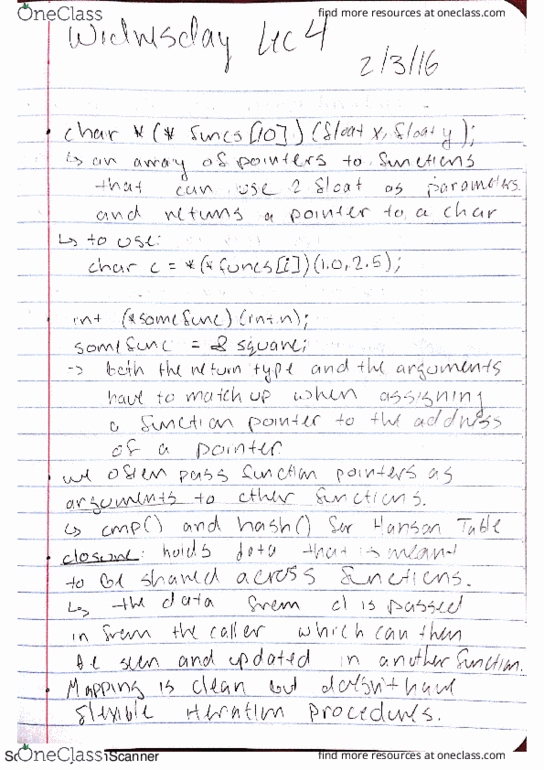 OneClass
find more resources at oneclass.com
Wednesday Lec 4
2/3/16
• char *(* funcs[10])(float x, float y);
↳ an array of pointers to functions
that can use 2 float as parameters
and returns a pointer to a char
↳ to use:
char c = *(*funcs[i])(1.0, 2.5);
• int (*somefunc)(int n);
somefunc = & square;
-> both the return type and the arguments
have to match up when assigning
a function pointer to the address
of a pointer.
• we often pass function pointers as
arguments to other functions.
↳ cmp() and hash() for Hanson Table
• closure: holds data that is meant
to be shared across functions.
↳ the data from cl is passed
in from the caller which can then
be seen and updated in another function.
• Mapping is clean but doesn't have
flexible iteration procedures.
OneClass
Scanner
find more resources at oneclass.com